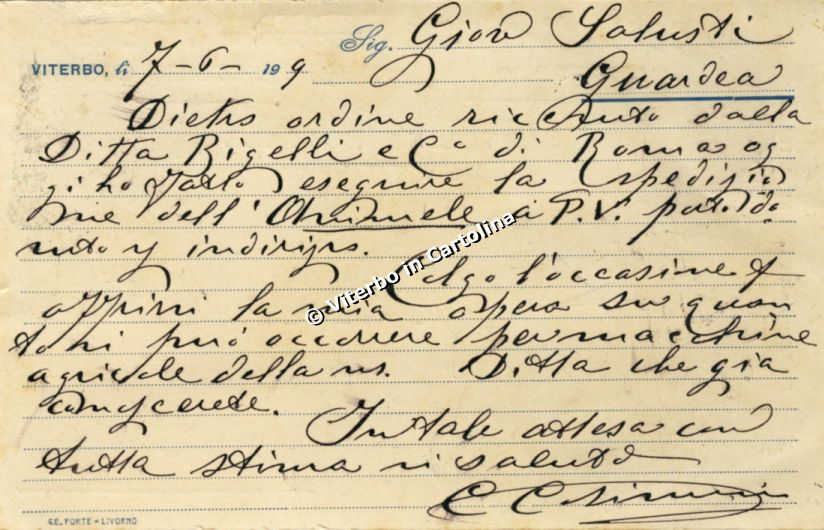 Sig. Giov Salusti
VITERBO, lì 7-6- 19 9
Guardea
Dietro ordine ricevuto dalla
Ditta Rigelli e Cº di Roma og
gi ho fatto eseguire la spedizio
ne dell' a P.V. porto
indirizzo.
Colgo l'occasione
offrirvi la mia opera su quan
to vi può occorrere per macchine
agricole della ns. Ditta che già
conoscerete.
In tale attesa con
tutta stima vi saluto
© Viterbo in Cartolina
BELFORTE - LIVORNO